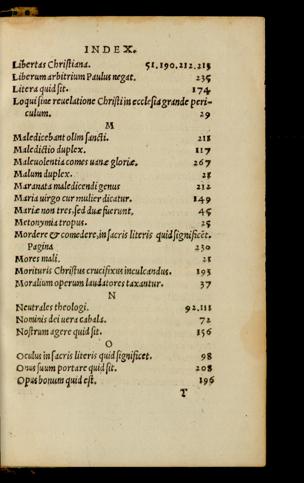 INDEX.
Libertas Christiana. 51.190.212.213
Liberum arbitrium Paulus negat. 235
Litera quid sit. 174
Loqui sine reuelatione Christi in ecclesia grande peri-
culum. 29
M
Maledicebant olim sancti. 211
Maledictio duplex. 117
Maleuolentia comes uanæ gloriæ. 267
Malum duplex. 21
Maranata maledicendi genus 212
Maria uirgo cur mulier dicatur. 149
Mariæ non tres, sed duæ fuerunt. 45
Metonymia tropus. 25
Mordere & comedere, in sacris literis quid significet.
Pagina 230
Mores mali. 21
Morituris Christus crucifixus inculcandus. 193
Moralium operum laudatores taxantur. 37
N
Neutrales theologi. 92.111
Nominis dei uera cabala. 72
Nostrum agere quid sit. 156
O
Oculus in sacris literis quid significet. 98
Onus suum portare quid sit. 208
Opus bonum quid est. 196
T